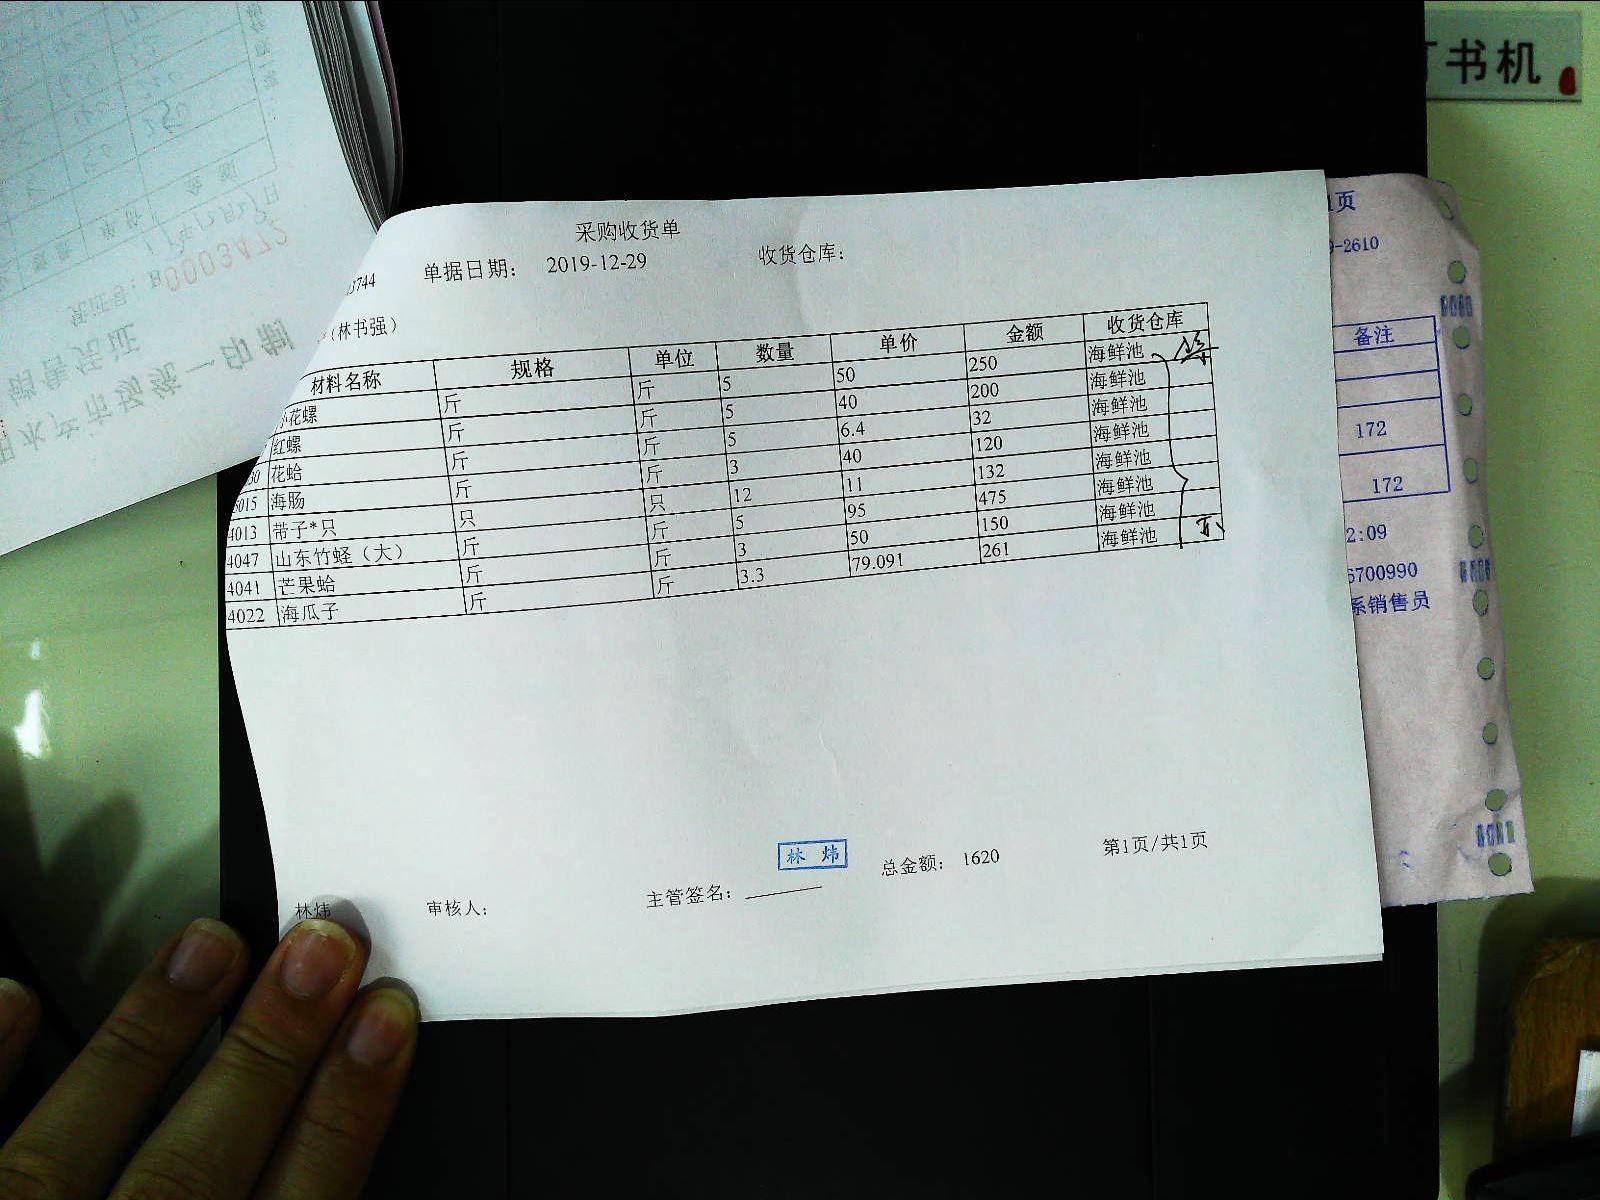 订书机
采购收货单
3744 单据日期： 2019-12-29 收货仓库：
（林书强）
材料名称 规格 单位 数量 单价 金额 收货仓库
小花螺 斤 斤 5 50 250 海鲜池
红螺 斤 斤 5 40 200 海鲜池
30 花蛤 斤 斤 5 6.4 32 海鲜池
5015 海肠 斤 斤 3 40 120 海鲜池
4013 带子*只 只 只 12 11 132 海鲜池
4047 山东竹蛏（大） 斤 斤 5 95 475 海鲜池
4041 芒果蛤 斤 斤 3 50 150 海鲜池
4022 海瓜子 斤 斤 3.3 79.091 261 海鲜池
林 炜
总金额： 1620 第1页/共1页
林炜 审核人： 主管签名：
1页
9-2610
备注
172
172
2:09
6700990
系销售员
0003472
凭证号：
销售凭证
水产市场统一印制